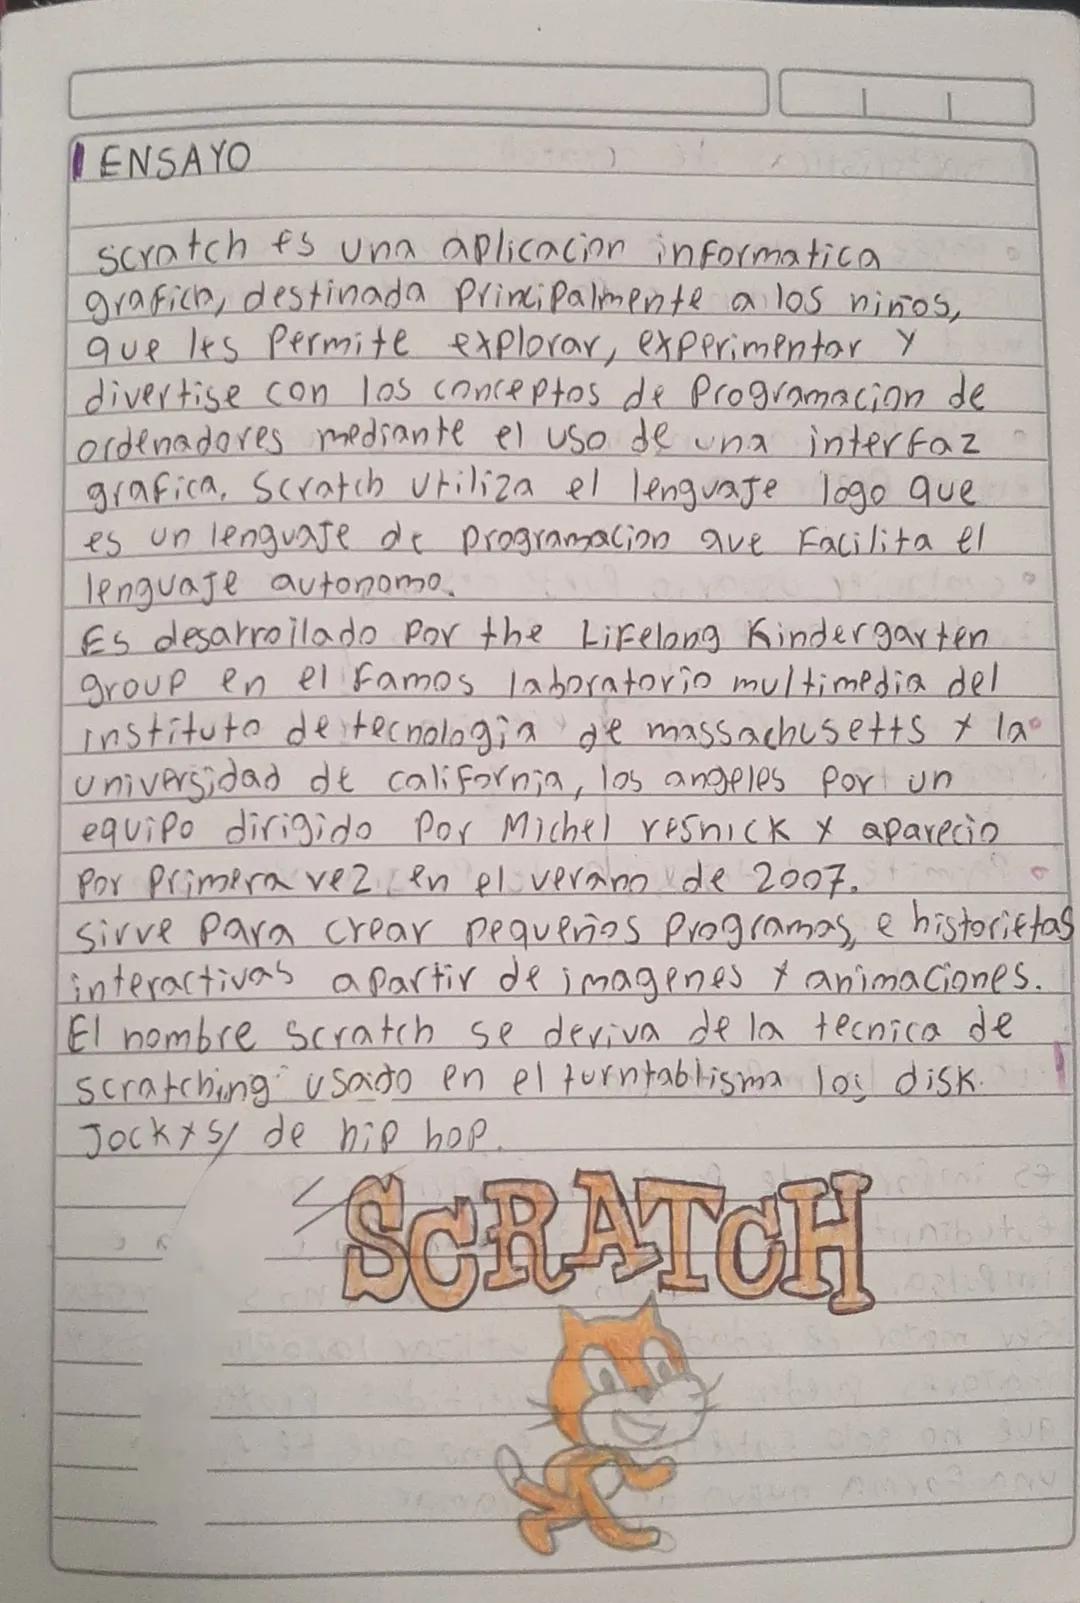 ENSAYO
scratch es una aplicacion informatica
grafica, destinada principalmente a los niños,
que les permite explorar, experimentar y
divertise con los conceptos de programacion de
ordenadores mediante el uso de una interfaz
grafica. Scratch utiliza el lenguaje logo que
es un lenguaje de programacion que facilita el
lenguaje autonomo.
Es desarrollado por the Lifelong Kindergarten
group en el famos laboratorio multimedia del
instituto de tecnologia de massachusetts y la
universidad de california, los angeles por un
equipo dirigido por Michel resnick y aparecio
por primera vez en el verano de 2007.
sirve para crear pequeños programas, e historietas
interactivas apartir de imagenes y animaciones.
El nombre scratch se deriva de la tecnica de
scratching usado en el turntablisma los disk.
Jockys/ de hip hop.
SCRATCH